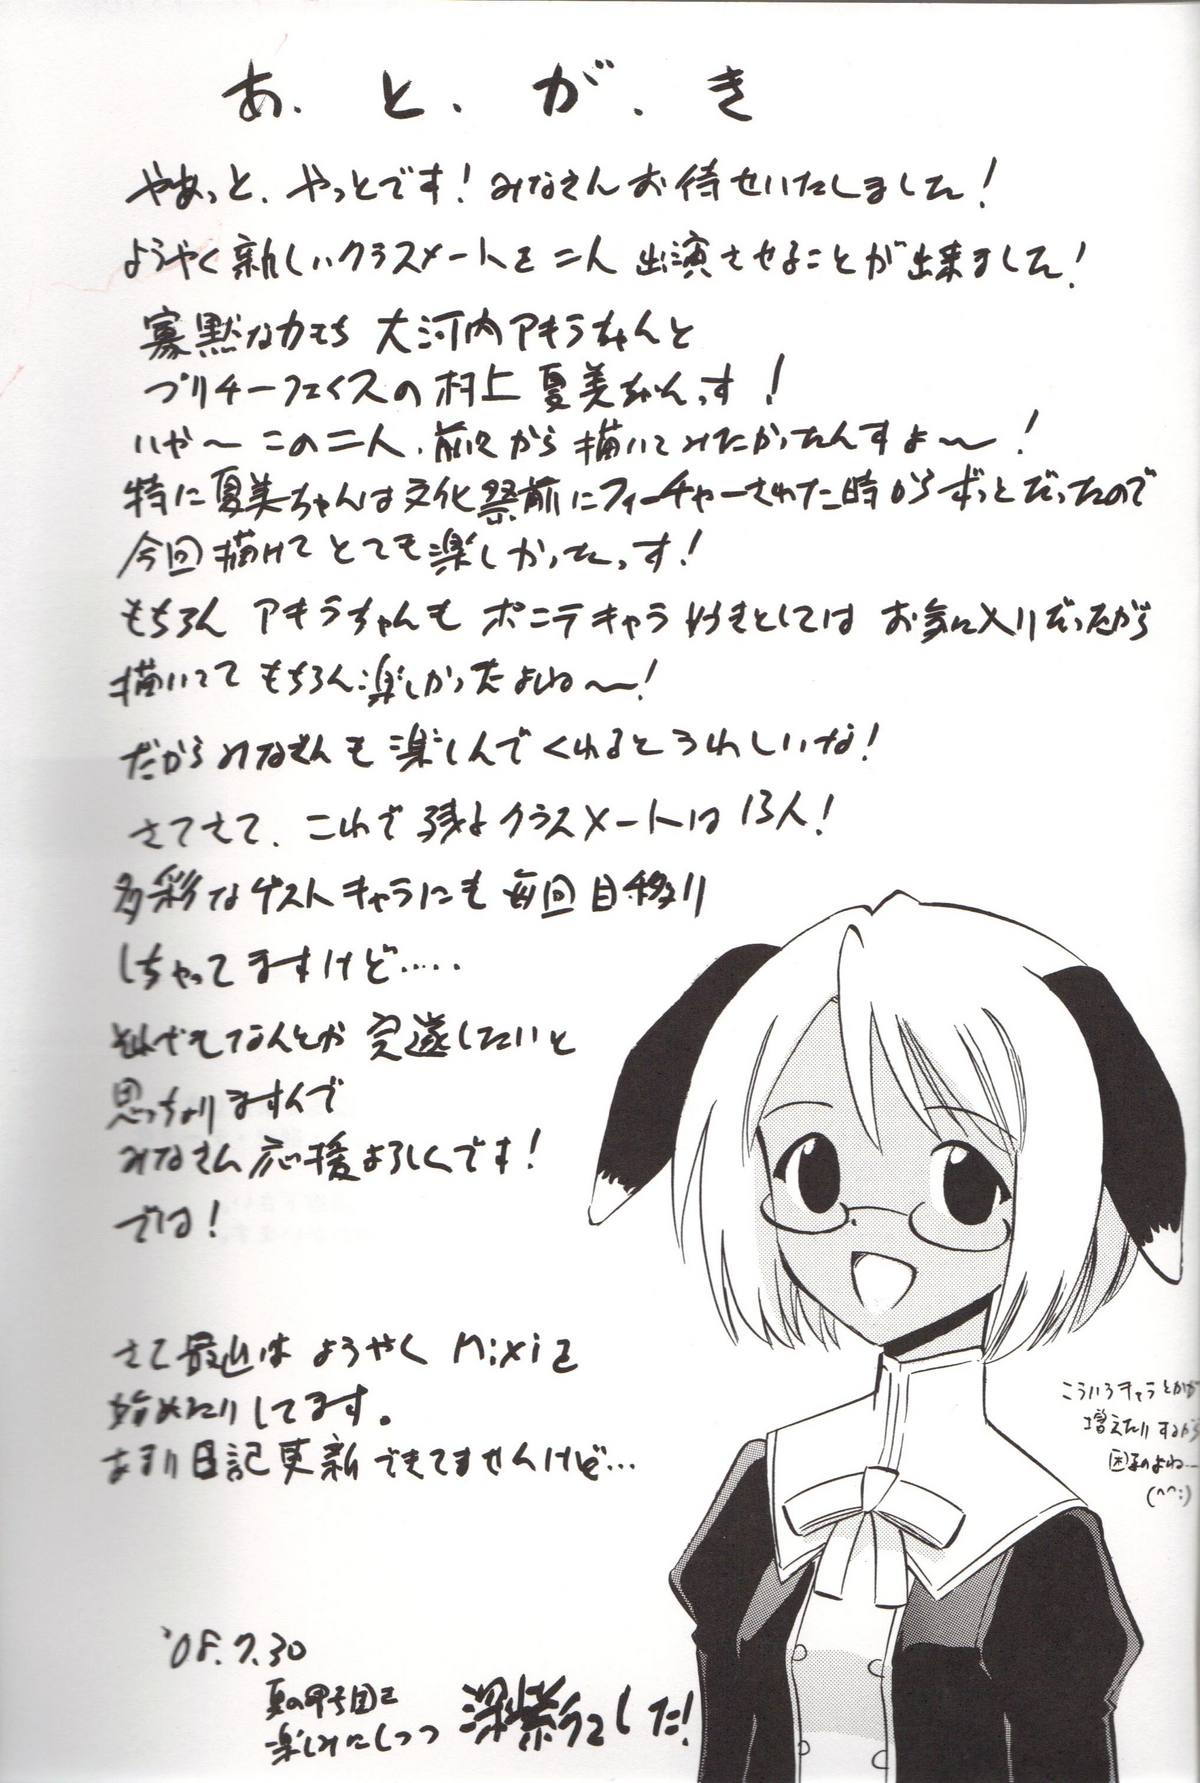 あ、と、が、き
やあっと、やっとです!みなさんお待せいたしました!
ようやく新しいクラスメートを二人 出演させることが出来ました!
寡黙な力もち 大河内アキラちゃんと
プリチーフェイスの村上夏美ちゃんっす!
いや〜この二人、前々から描いてみたかったんすよ〜!
特に夏美ちゃんは文化祭前にフィーチャーされた時からずっとだったので
今回描けてとても楽しかったっす!
もちろん アキラちゃんも ポニテキャラ好きとしては お気に入りだったから
描いてて もちろん楽しかったよね〜!
だからみなさんも楽しんでくれるとうれしいな!
さてさて、これで残よクラスメートは13人!
多彩なゲストキャラにも毎回目移り
しちゃってますけど・・・・・
それでもなんとか完遂したいと
思っちょりますんで
みなさん応援よろしくです!
では!
さて最近は ようやく mixiを
始めたりしてます。
あまり日記更新できてませんけど…
こういうキャラとかが
増えたりするから
困るのよね…
(^^;)
'08.7.30
夏の甲子園を
楽しみにしつつ 深紫でした!